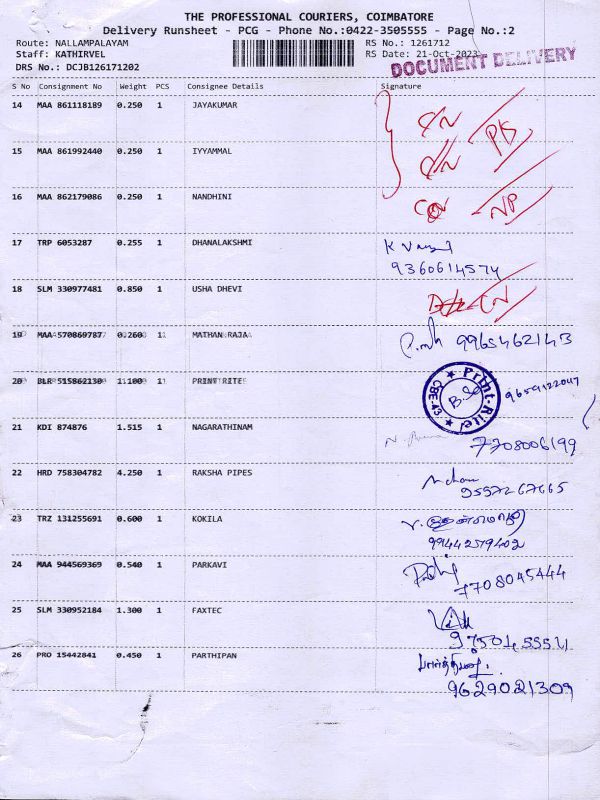 THE PROFESSIONAL COURIERS, COIMBATORE
Delivery Runsheet - PCG - Phone No.:0422-3505555 - Page No.:2
Route: NALLAMPALAYAM
Staff: KATHIRVEL
DRS No.: DCJB126171202
RS No.: 1261712
RS Date: 21-Oct-2023
DOCUMENT DELIVERY
S No Consignment No Weight PCS Consignee Details Signature
14 MAA 861118189 0.250 1 JAYAKUMAR
15 MAA 861992440 0.250 1 IYYAMMAL
16 MAA 862179086 0.250 1 NANDHINI
NP
17 TRP 6053287 0.255 1 DHANALAKSHMI
9360614574
18 SLM 330977481 0.850 1 USHA DHEVI
19 MAA 570869787 0.260 1 MATHAN RAJA 9965462143
20 BLR 515862130 1.100 1 PRINT RITE
Print-Rite CBE-43
9659122047
21 KDI 874876 1.515 1 NAGARATHINAM
7708006199
22 HRD 758304782 4.250 1 RAKSHA PIPES
9597267665
23 TRZ 131255691 0.600 1 KOKILA
9944259402
24 MAA 944569369 0.540 1 PARKAVI
7708045444
25 SLM 330952184 1.300 1 FAXTEC
26 PRO 15442841 0.450 1 PARTHIPAN
9629021309